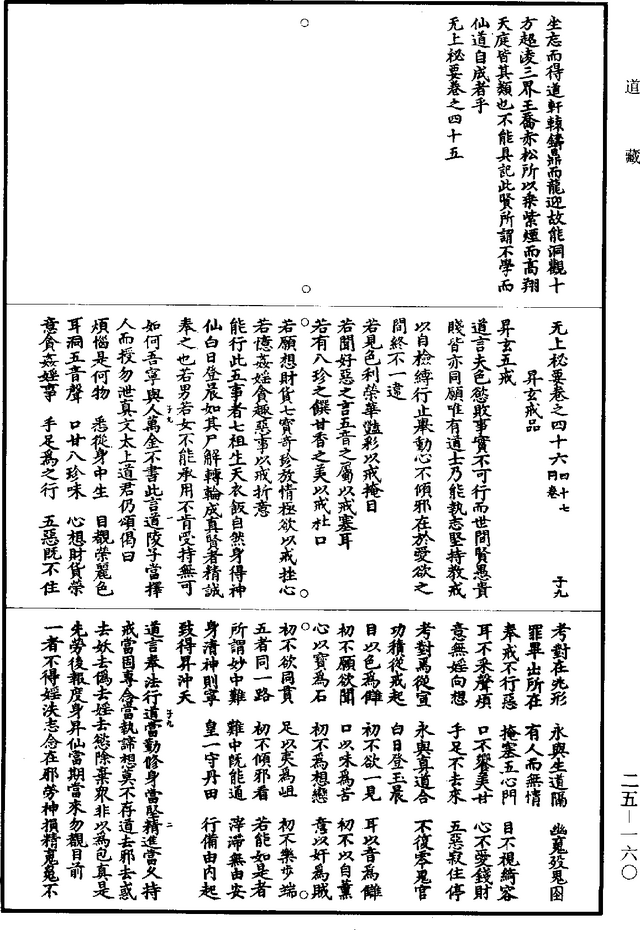 道藏
坐忘而得道軒轅鑄鼎而龍迎故能洞觀十
方超凌三界王喬赤松所以乘紫煙而高翔
天庭皆其類也不能具記此賢所謂不學而
仙道自成者乎
无上秘要卷之四十五
无上秘要卷之四十六 四十七同卷 子九
昇玄戒品
昇玄五戒
道言夫色慾敗事實不可行而世間賢愚貴
賤皆亦同願唯有道士乃能執志堅持教戒
以自檢縛行止舉動心不傾邪在於愛欲之
間終不一違
若見色利榮華豔彩以戒掩目
若聞好惡之言五音之屬以戒塞耳
若有八珍之饌甘香之美以戒杜口
若願想財貨七寶奇珍放情極欲以戒挫心
若憶姦婬貪趣惡事以戒折意
能行此五事者七祖生天衣飯自然身得神
仙白日登晨如其尸解轉輪成真賢者精誠
奉之也若男若女不能承用不肯受持無可
如何吾寧與人萬金不書此言道陵子當擇
人而授勿泄真文太上道君仍頌偈曰
煩惱是何物 悉從身中生 目觀榮麗色
耳洞五音聲 口甘八珍味 心想財貨榮
意貪姦婬事 手足為之行 五惡既不住
考對在死形 永與生道隔 幽魂發鬼囹
罪畢出所在 有人而無情
奉戒不行惡 掩塞五心門 目不視綺容
耳不釆聲煩 口不饗美甘 心不愛錢財
意無婬向想 手足不去來 五惡寂住停
考對焉從宣 永與真道合 不復零鬼官
功積從戒起 白日登玉晨
目以色為讎 初不欲一見 耳以音為讎
初不願欲聞 口以味為苦 初不以自薰
心以寶為石 初不為想戀 意以奸為賊
初不欲同貫 足以夷為岨 初不樂步端
五者同一路 初不傾邪看 若能如是者
所謂妙中難 難中既能通 滓滯無由安
身清神則寧 皇一守丹田 行備由內起
致得昇沖天
道言奉法行道當勤修身當堅精進當久持
戒當固專念當執諦想莫不存道去邪去惑
去妖去偽去婬去慾除棄眾非以為包真是
先勞後報度身昇仙當期當來勿觀目前
一者不得婬泆志念在邪勞神損精魂魄不
子九
一
子九
二
二五－一六〇